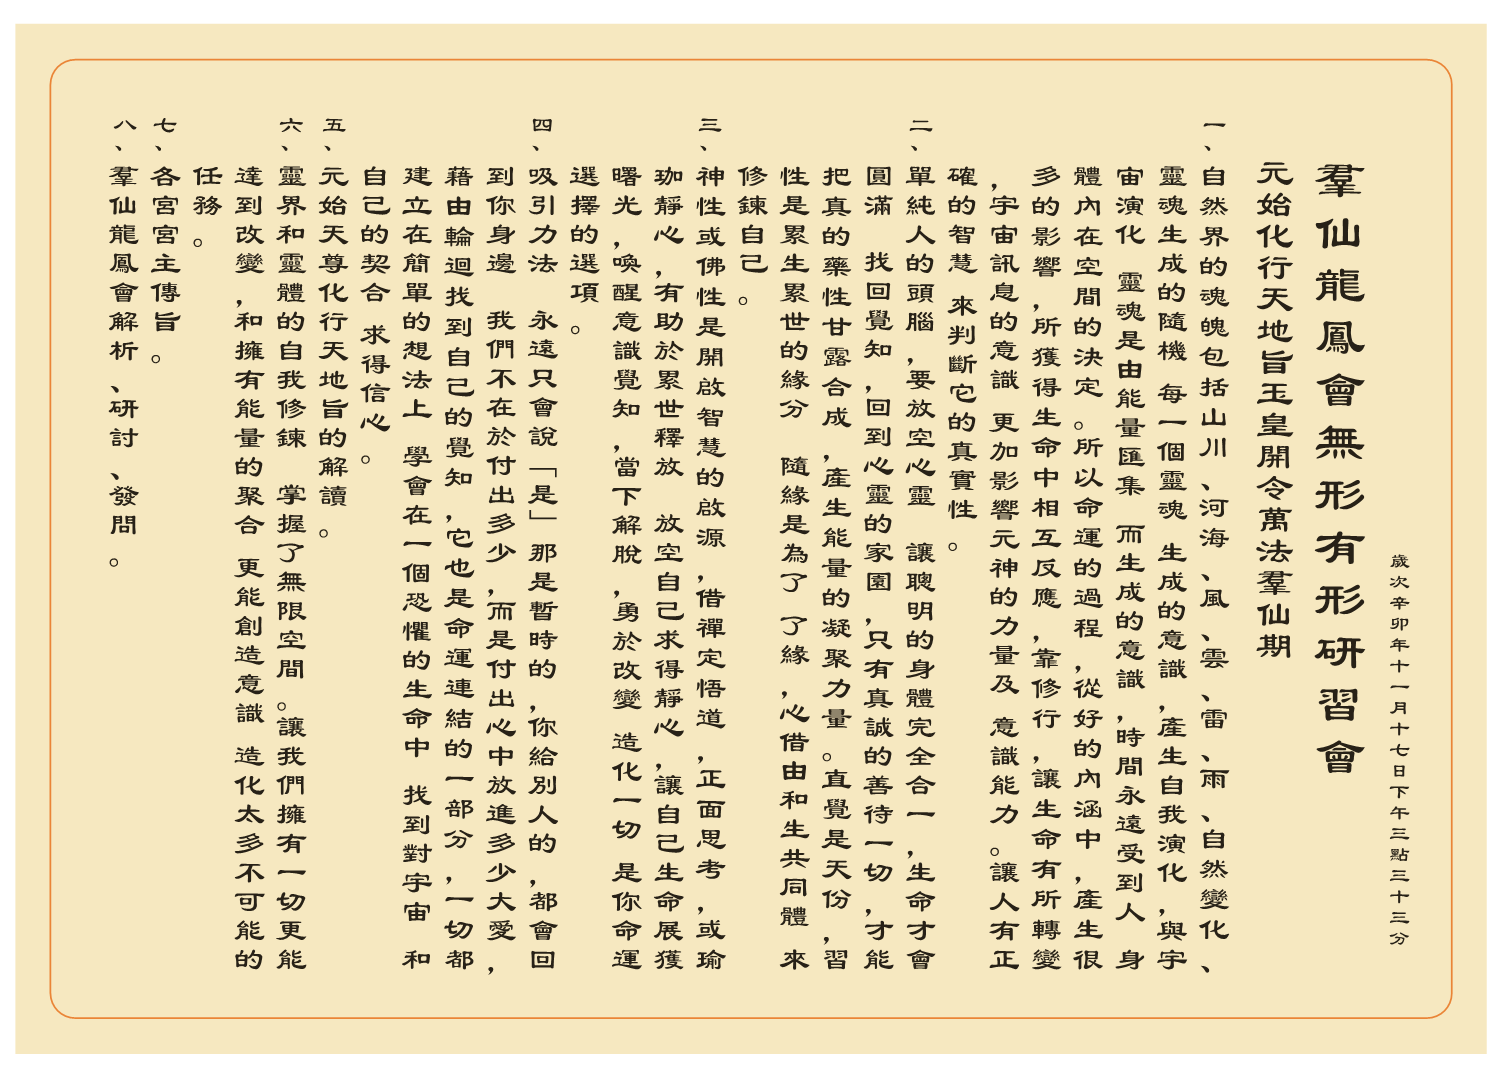 歲次辛卯年十一月十七日下午三點三十三分
羣仙龍鳳會無形有形研習會
元始化行天地旨玉皇開令萬法羣仙期
一、自然界的魂魄包括山川、河海、風、雲、雷、雨、自然變化、
靈魂生成的隨機 每一個靈魂 生成的意識,產生自我演化,與宇
宙演化 靈魂是由能量匯集 而生成的意識,時間永遠受到人 身
體內在空間的決定。所以命運的過程,從好的內涵中,產生很
多的影響,所獲得生命中相互反應,靠修行,讓生命有所轉變
,宇宙訊息的意識 更加影響元神的力量及 意識能力。讓人有正
確的智慧 來判斷它的真實性。
二、單純人的頭腦,要放空心靈 讓聰明的身體完全合一,生命才會
圓滿 找回覺知,回到心靈的家園,只有真誠的善待一切,才能
把真的藥性甘露合成,產生能量的凝聚力量。直覺是天份,習
性是累生累世的緣分 隨緣是為了 了緣,心借由和生共同體 來
修鍊自己。
三、神性或佛性是開啟智慧的啟源,借禪定悟道,正面思考,或瑜
珈靜心,有助於累世釋放 放空自己求得靜心,讓自己生命展獲
曙光,喚醒意識覺知,當下解脫,勇於改變 造化一切 是你命運
選擇的選項。
四、吸引力法 永遠只會說「是」那是暫時的,你給別人的,都會回
到你身邊 我們不在於付出多少,而是付出心中放進多少大愛,
藉由輪迴找到自己的覺知,它也是命運連結的一部分,一切都
建立在簡單的想法上 學會在一個恐懼的生命中 找到對宇宙 和
自己的契合 求得信心。
五、元始天尊化行天地旨的解讀。
六、靈界和靈體的自我修鍊 掌握了無限空間。讓我們擁有一切更能
達到改變,和擁有能量的聚合 更能創造意識 造化太多不可能的
任務。
七、各宮宮主傳旨。
八、羣仙龍鳳會解析、研討、發問。